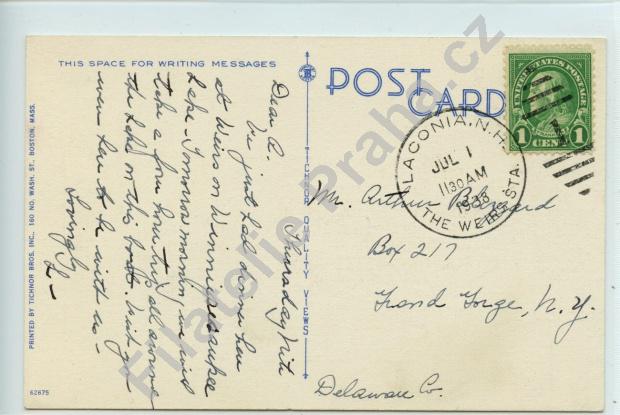 THIS SPACE FOR WRITING MESSAGES
POST CARD
UNITED STATES POSTAGE
1 CENT 1
LACONIA, N.H.
JUL 1
1130 AM
1938
THE WEIRS STA.
Thursday Nite
Dear A.
We just had dinner here
at Weirs on Winnipesaukee
Lake. Tomorrow morning we will
take a four hour trip all around
the lake on this boat. Wish you
were here to be with us -
Lovingly
L -
Mr. Arthur
Box 217
Grand Gorge, N.Y.
Delaware Co.
TICHNOR QUALITY VIEWS
PRINTED BY TICHNOR BROS. INC., 160 NO. WASH. ST., BOSTON, MASS.
62875
Filatelie Praha.cz